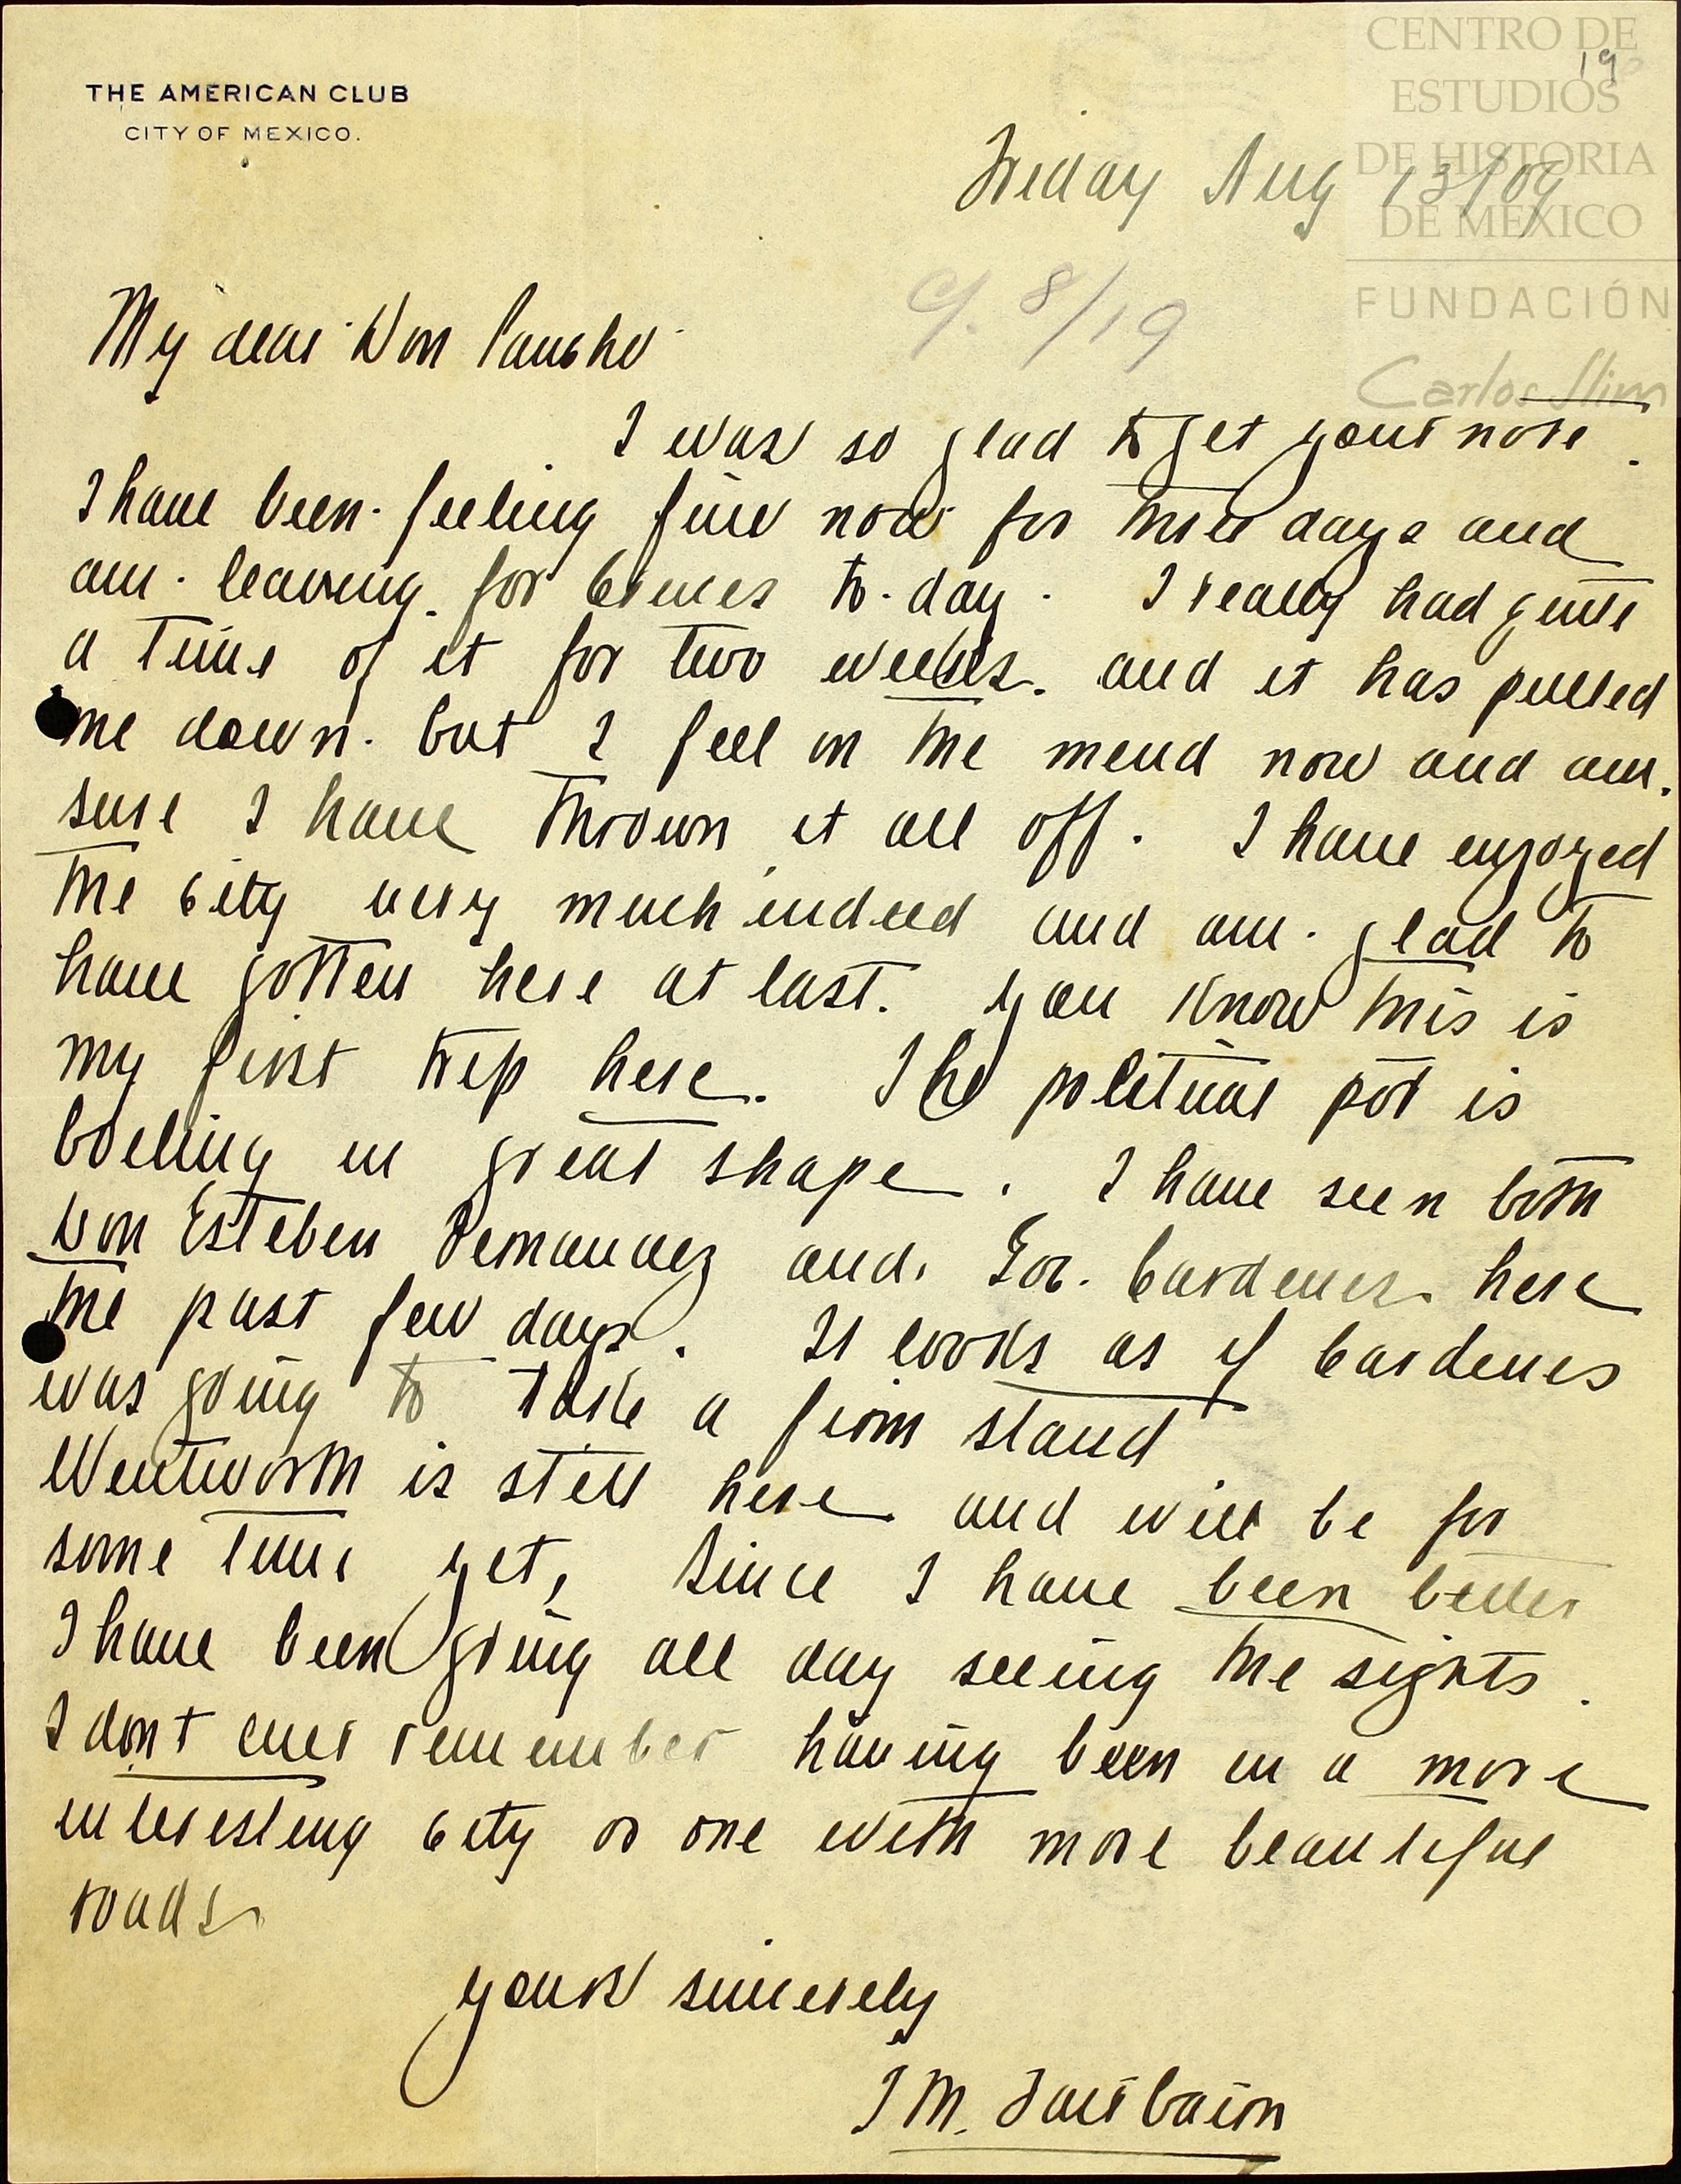 THE AMERICAN CLUB
CITY OF MEXICO.
CENTRO DE
ESTUDIOS
DE HISTORIA
DE MÉXICO
FUNDACIÓN
Carlos Slim
19
Friday Aug 13/09
8/19
My dear Don Pancho
I was so glad to get your note.
I have been feeling fine now for three days and
am leaving for to-day. I really had quite
a time of it for two weeks. and it has pulled
me down. but I feel on the mend now and am
sure I have thrown it all off. I have enjoyed
the city very much indeed and am glad to
have gotten here at last. you know this is
my first trip here. The political pot is
boiling in great shape. I have seen both
Don Esteben Fernandez and Gov. Cardenas here
the past few days. It looks as if Cardenas
was going to take a firm stand
Wentworth is still here and will be for
some time yet, Since I have been better
I have been going all day seeing the sights.
I dont ever remember having been in a more
interesting city or one with more beautiful
roads
yours sincerely
J M. Fairbairn